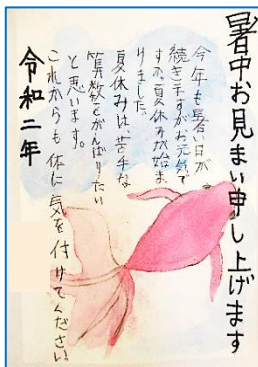 暑中お見まい申し上げます
今年も暑い日が
続きますがお元気で
すか。夏休みが始ま
りました。
夏休みは、苦手な
算数をがんばりたい
と思います。
これからも体に気を付けてください。
令和二年